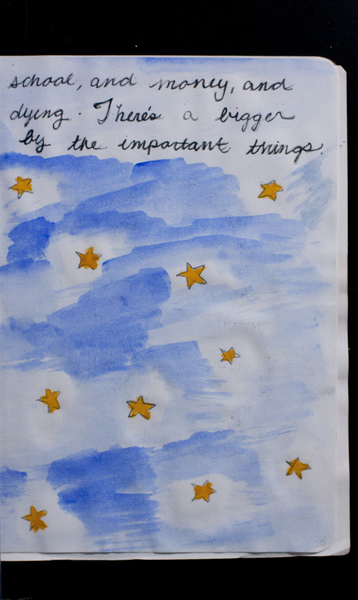 school, and money, and
dying. There's a bigger
by the important things.